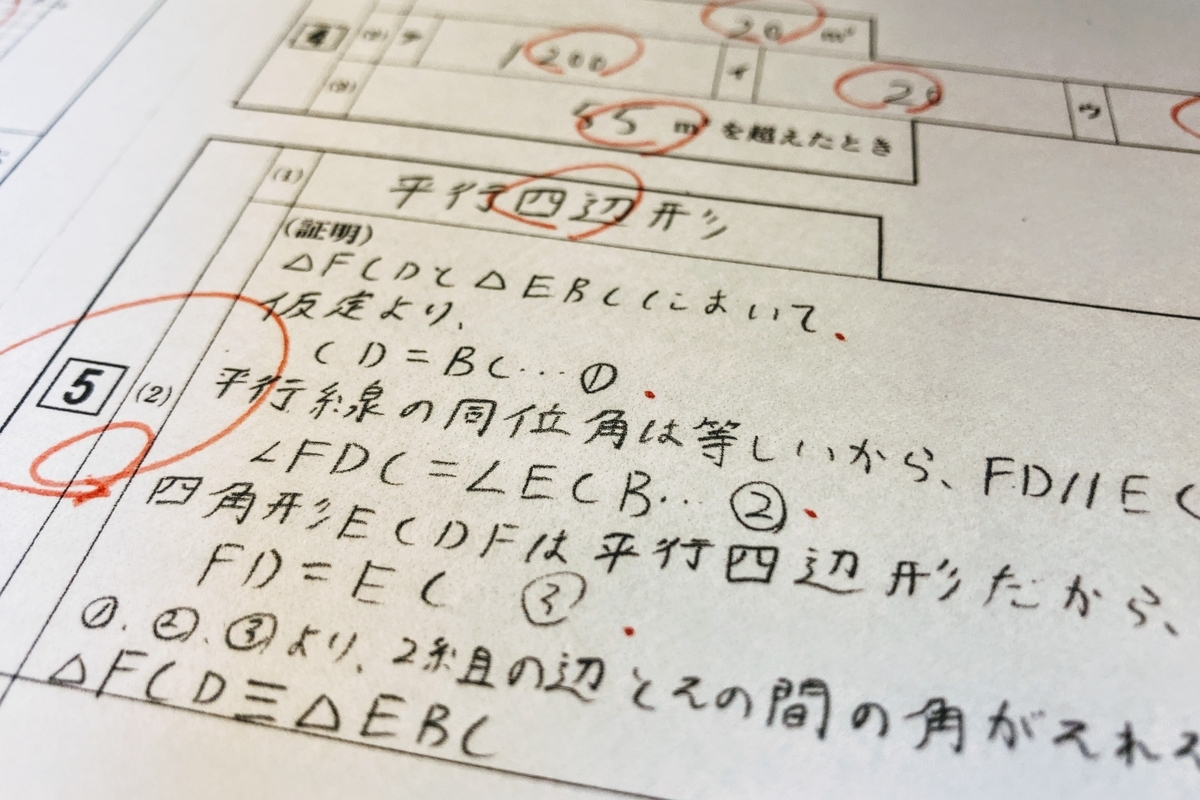 20 m³
4 (2) ア 1200 イ 20 ウ
(3) 55 m³ を超えたとき
(1) 平行四辺形
(証明)
△FCDと△EBCにおいて
仮定より、
CD=BC…①
5 (2) 平行線の同位角は等しいから、FD//EC
∠FDC=∠ECB…②
四角形ECDFは平行四辺形だから、
FD=EC ③
①、②、③より、2組の辺とその間の角がそれぞ
△FCD≡△EBC